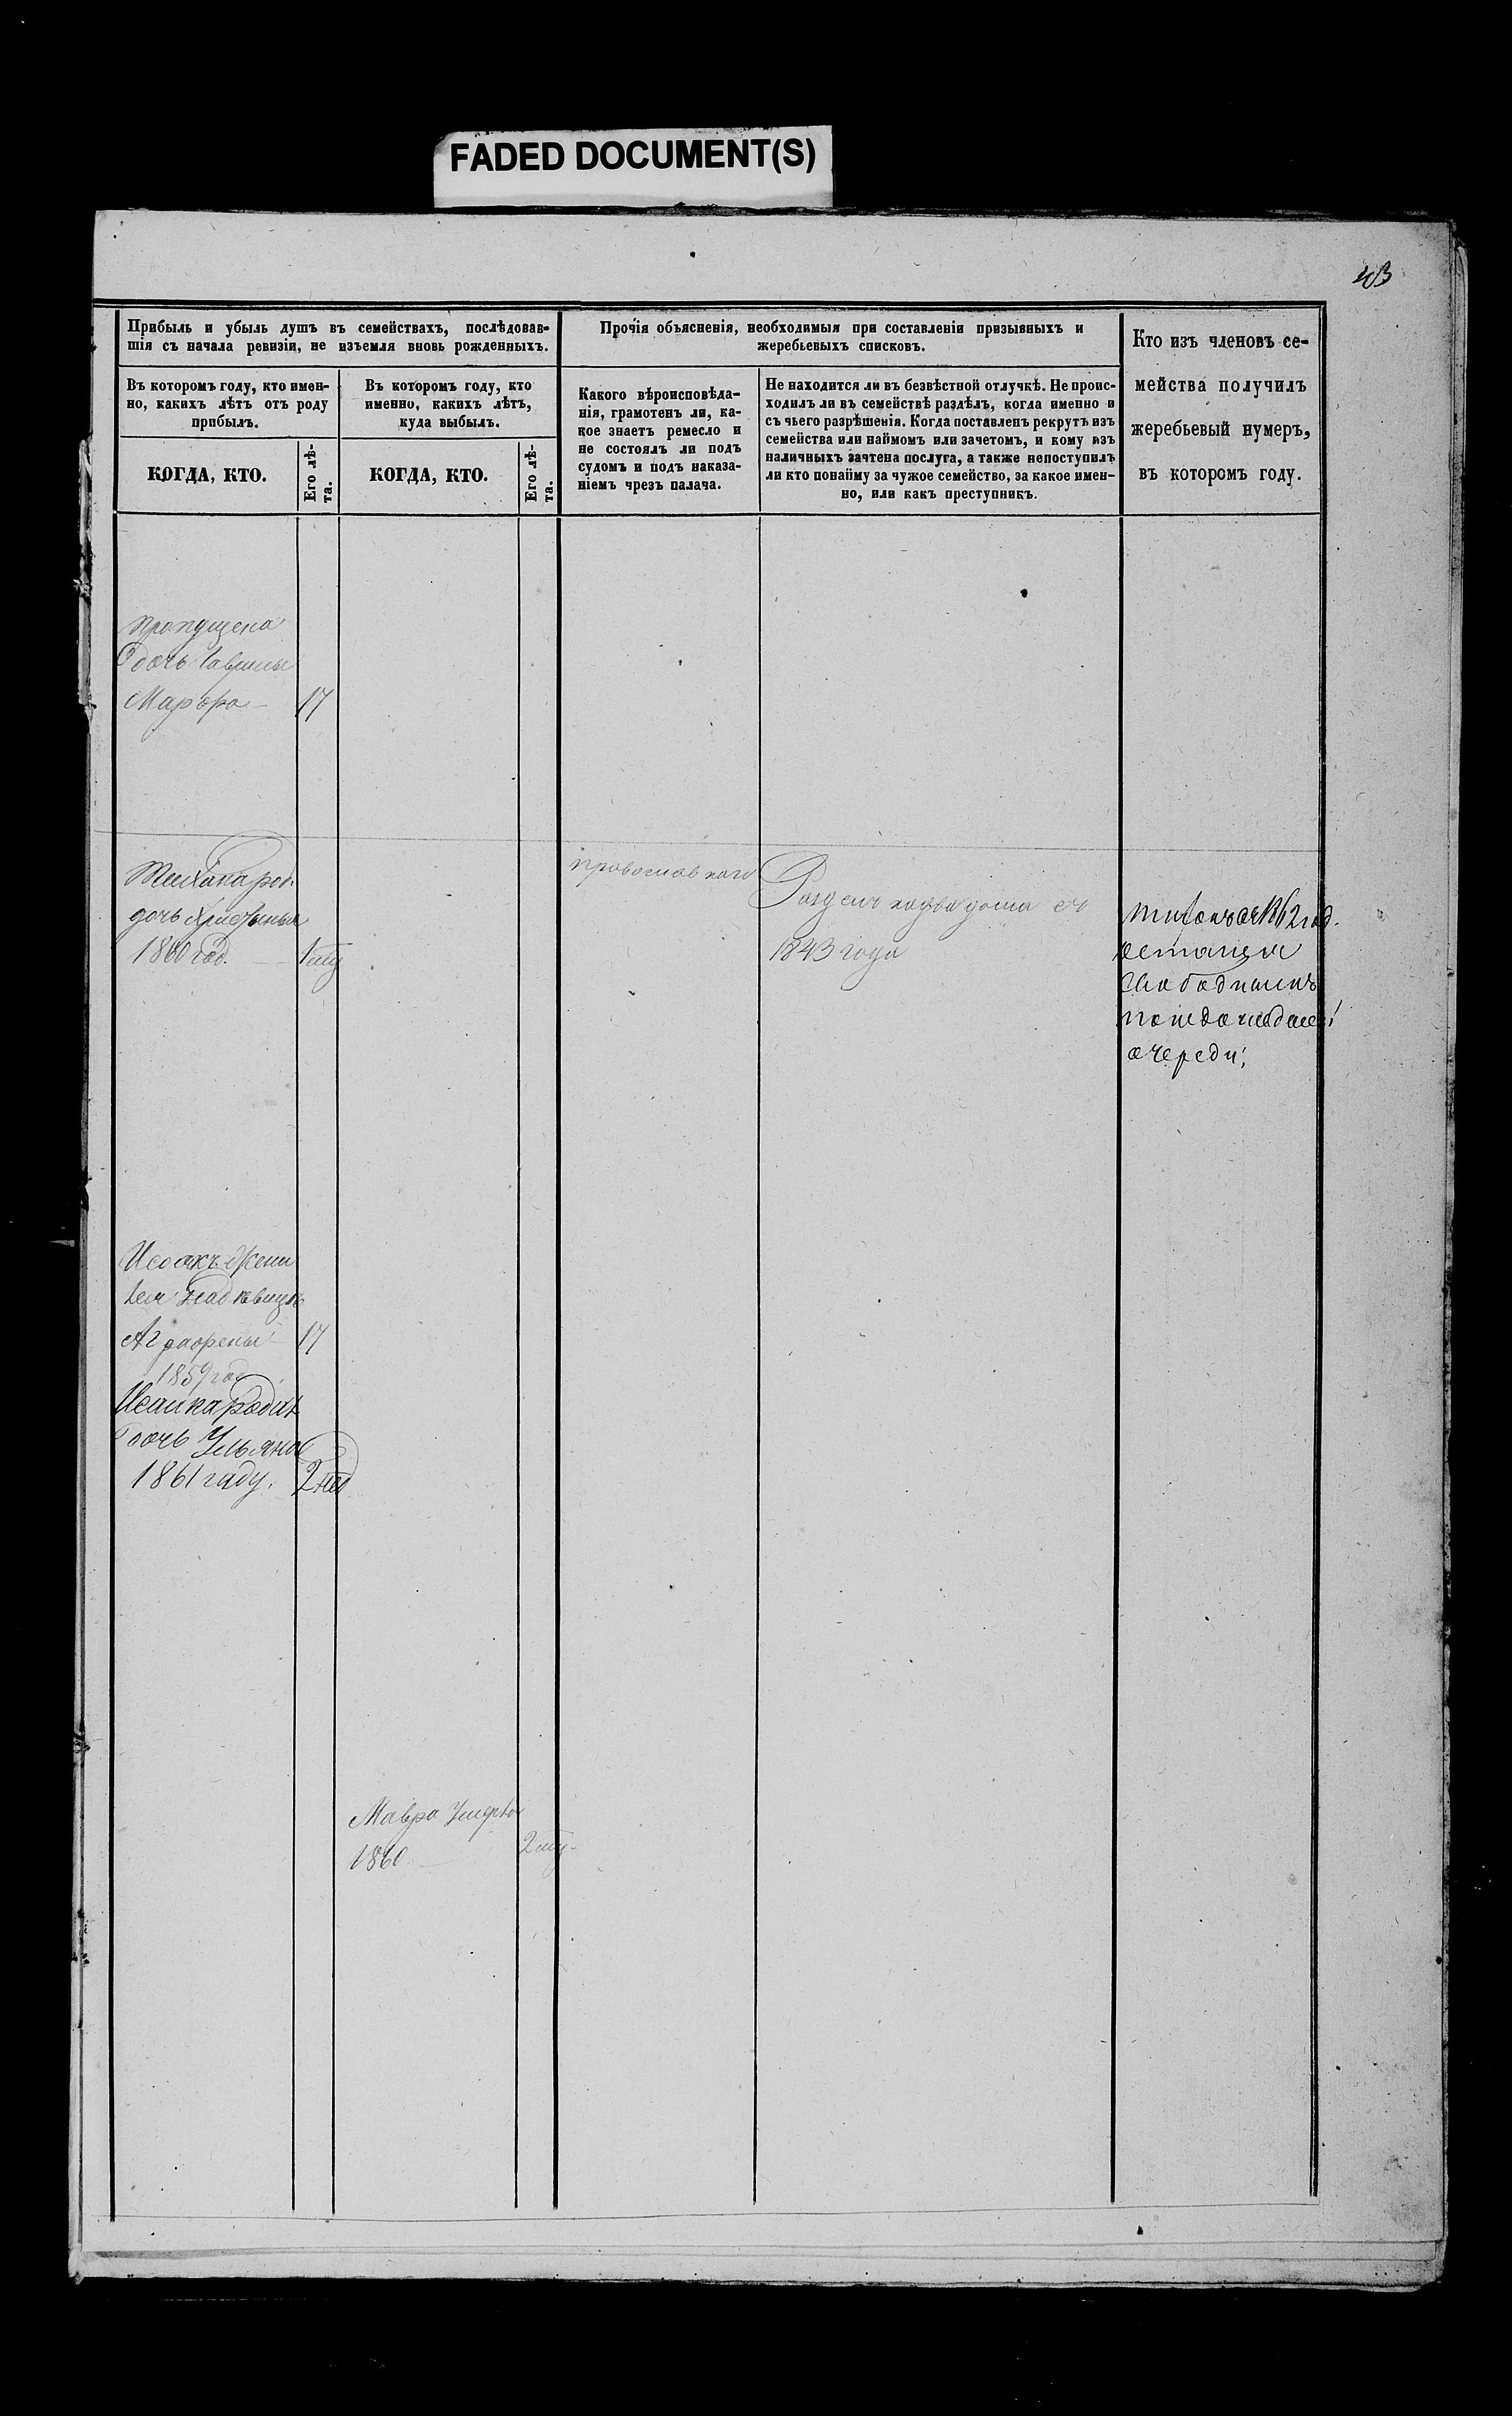 FADED DOCUMENT(S)
43
Прибыль и убыль душъ въ семействахъ, послѣдовав-
шія съ начала ревизіи, не изъемля вновь рожденныхъ.
Въ которомъ году, кто имен-
но, какихъ лѣтъ отъ роду
прибылъ.
КОГДА, КТО.
Его лѣ-
та.
Въ которомъ году, кто
именно, какихъ лѣтъ,
куда выбылъ.
КОГДА, КТО.
Его лѣ-
та.
Прочія объясненія, необходимыя при составленіи призывныхъ и
жеребьевыхъ списковъ.
Какого вѣроисповѣда-
нія, грамотенъ ли, ка-
кое знаетъ ремесло и
не состоялъ ли подъ
судомъ и подъ наказа-
ніемъ чрезъ палача.
Не находится ли въ безвѣстной отлучкѣ. Не проис-
ходилъ ли въ семействѣ раздѣлъ, когда именно и
съ чьего разрѣшенія. Когда поставленъ рекрутъ изъ
семейства или наймомъ или зачетомъ, и кому изъ
наличныхъ зачтена послуга, а также непоступилъ
ли кто понайму за чужое семейство, за какое имен-
но, или какъ преступникъ.
Кто изъ членовъ се-
мейства получилъ
жеребьевый нумеръ,
въ которомъ году.
пропущена
дочь Гаврилы
Марфа 17
дочь
1860 год.
православнаго
Разделъ съ
1843 года
1862 год.
остался
свободнымъ
очереди;
Исаакъ жени
лся на девице
Аграфены 17
1859 год
Исаика родил
дочь Ульяна
1861 году. 2 нед
Мавра умерла
1860